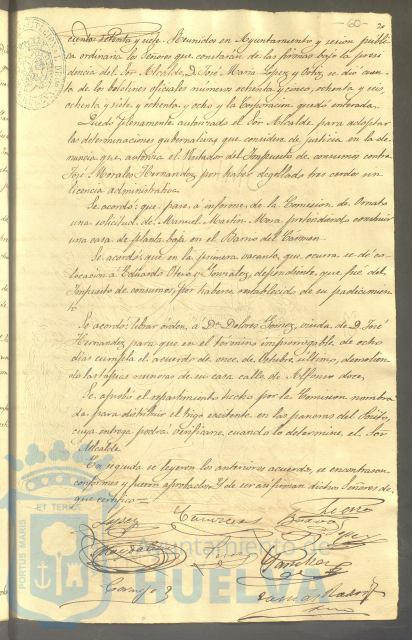 60
cientos ochenta y seis. Reunidos en Ayuntamiento y sesion públi-
ca ordinaria los Señores que constarán de las firmas bajo la presi-
dencia del Sor. Alcalde D. José María Lopez y Ortiz, se dió cuen-
ta de los boletines oficiales números ochenta y cinco, ochenta y seis,
ochenta y siete y ochenta y ocho y la Corporacion quedó enterada.
Quedó plenamente autorizado el Sor. Alcalde para adoptar
las determinaciones gubernativas que considere de justicia en la de-
nuncia que autoriza el Visitador del Impuesto de consumos contra
José Morales Hernandez, por haber degollado tres cerdos sin
licencia administrativa.
Se acordó: que pase á informe de la Comision de Ornato
una solicitud de Manuel Martin Mora pretendiendo construir
una casa de planta baja en el Barrio del Cármen.
Se acordó: que en la primera vacante que ocurra se dé co-
locacion á Eduardo Otero y Gonzalez, dependiente que fué del
Impuesto de consumos, por haberse restablecido de su padecimien-
to.
Se acordó: librar órden á Dª Dolores Gomez, viuda de D. José
Hernandez para que en el término improrrogable de ocho
dias cumpla el acuerdo de once de Octubre último, demolien-
do las tapias ruinosas de su casa calle de Alfonso doce.
Se aprobó el repartimiento hecho por la Comision nombra-
da para distribuir el trigo existente en las paneras del Pósito,
cuya entrega podrá verificarse cuando lo determine el Sor.
Alcalde.
En seguida se leyeron los anteriores acuerdos, se encontraron
conformes y fueron aprobados. Y de ser así firman dichos Señores de
que certifico=
Lopez
Garcia
Sanchez
PORTUS MARIS
ET TERRÆ
Ayuntamiento de
HUELVA